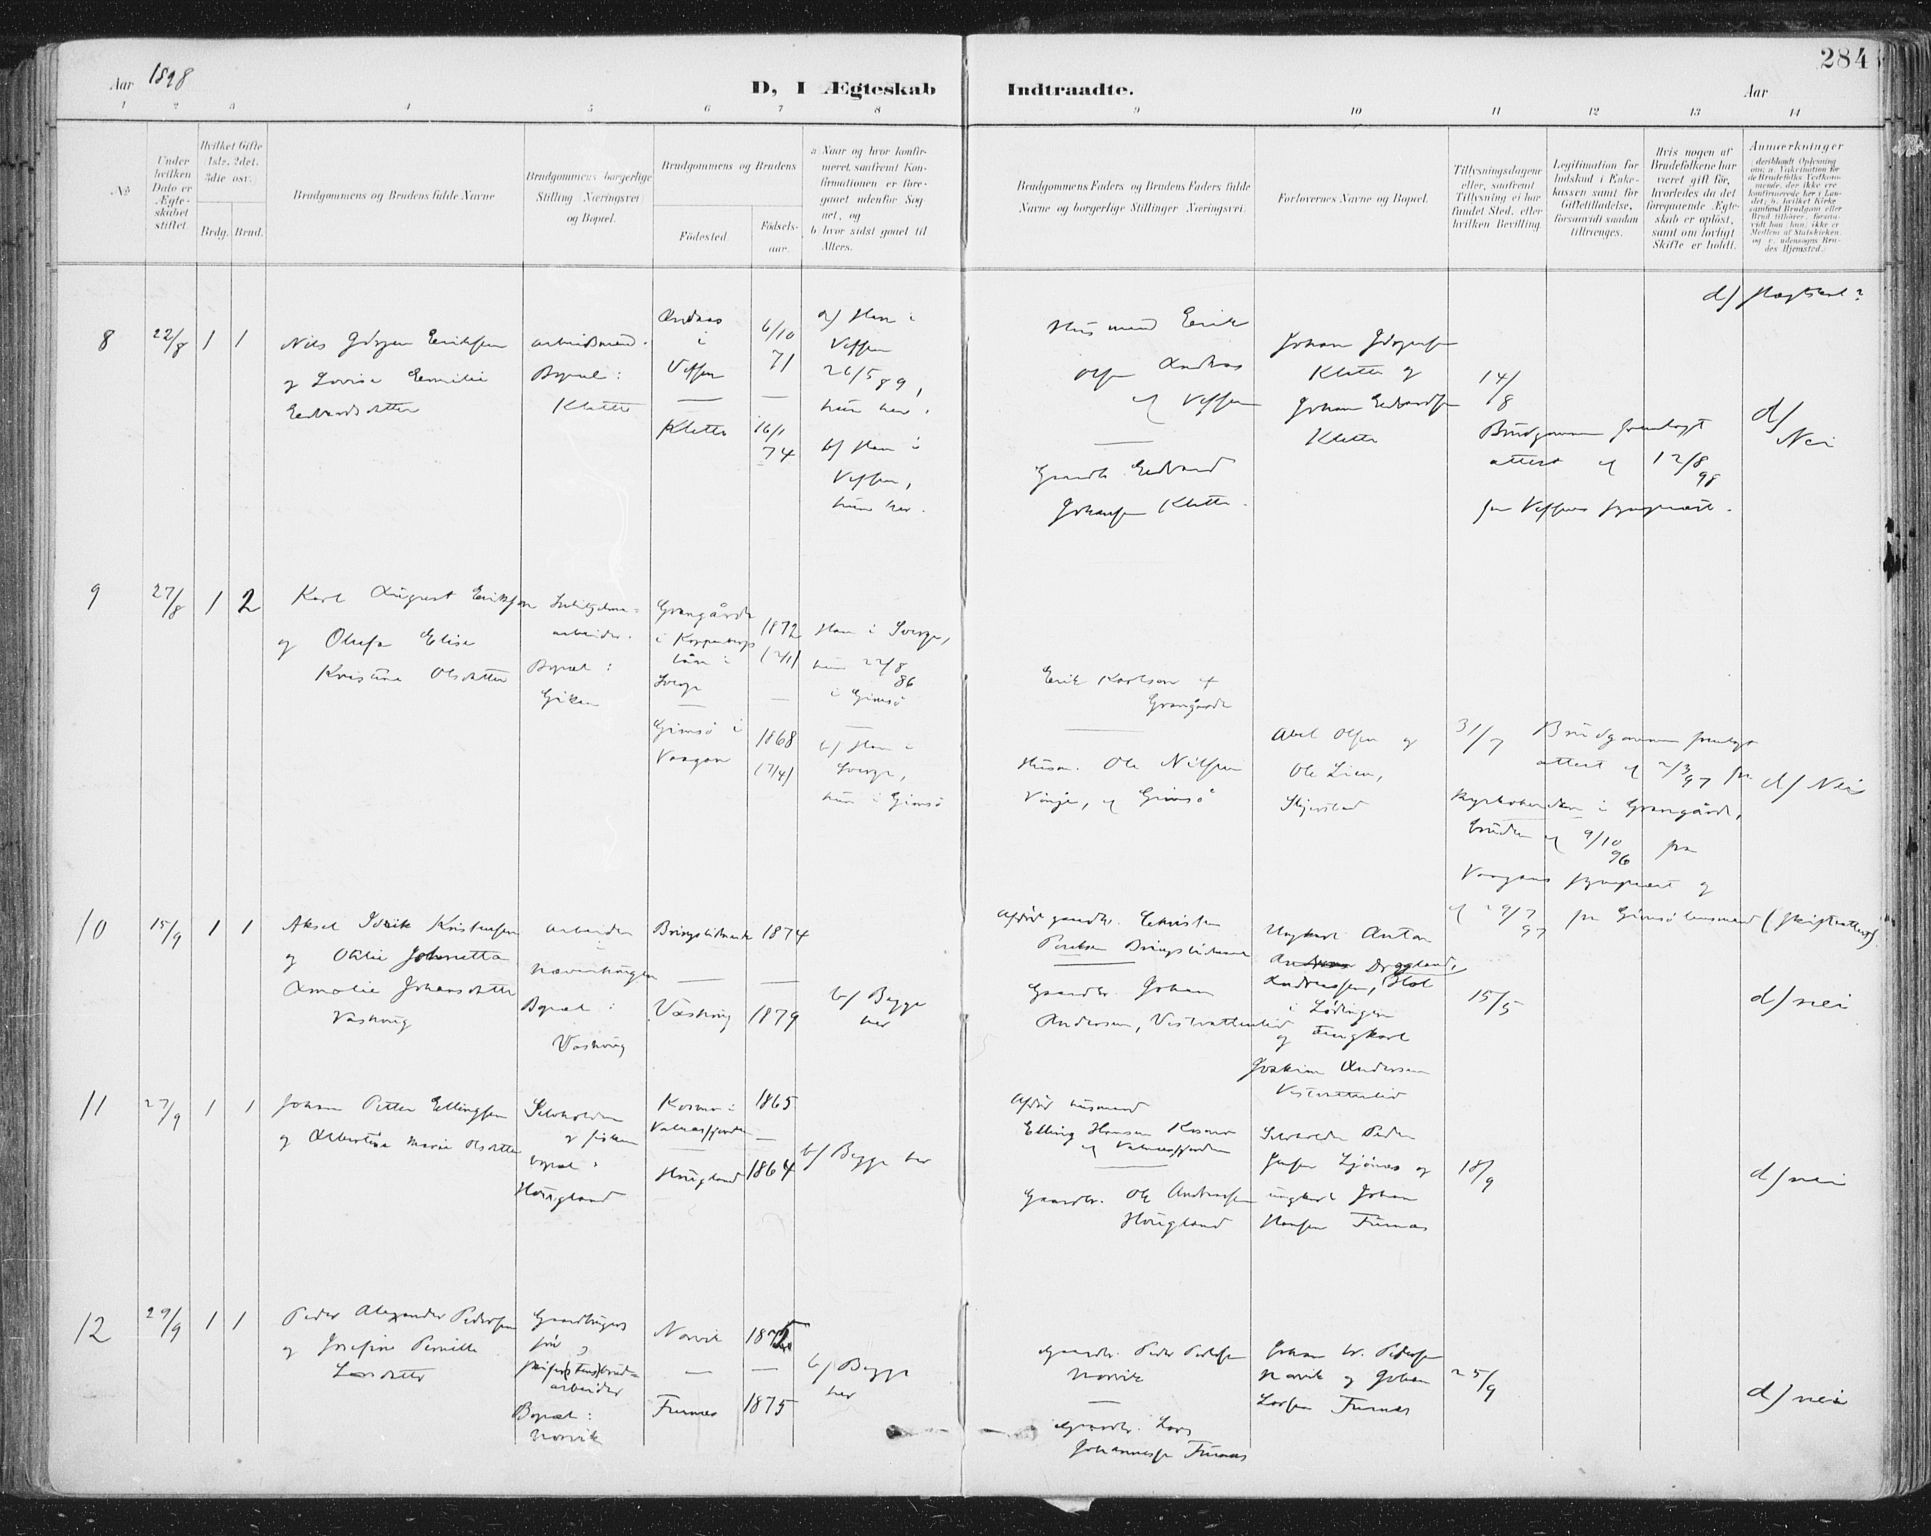 284
Aar 1898
D, I Ægteskab Indtraadte.
Aar
1 2 3 4 5 6 7 8 9 10 11 12 13 14
No
Under hvilken Dato er Ægteskabet stiftet
Hvilket Gifte 1ste, 2det, 3die osv.
Brdg. Brud.
Brudgommens og Brudens fulde Navne
Brudgommens borgerlige Stilling (Næringsvei) og Bopæl.
Brudgommens og Brudens
Fødested. Fødsels-aar.
a Naar og hvor konfirmeret, saafremt Konfirmationen er foregaaet udenfor Sognet, og
b hvor sidst gaaet til Alters.
Brudgommens Faders og Brudens Faders fulde Navne og borgerlige Stillinger (Næringsvei).
Forlovernes Navne og Bopæl.
Tillysningsdagene eller, saafremt Tillysning ei har fundet Sted, efter hvilken Bevilling.
Legitimation for Indskud i Enkekassen samt for Giftetilladelse, forsaavidt saadan tiltrænges.
Hvis nogen af Brudefolkene har været gift før, hvorledes da det foregaaende Ægteskab er opløst, samt om lovligt Skifte er holdt.
Anmærkninger
8
22/8
1 1
Nils Jørgen Eriksen
og Lovise Emilie
Edvardsdatter
arbeidsmand.
Bopæl:
Kletten
Andaas
i
Vefsen
—
Kletten
6/10
71
—
16/1
74
a/ Han i
Vefsen
26/5 89,
hun her.
b/ Han i
Vefsen,
hun her.
Husmand Erik
Olsen Andaas
af Vefsen
—
Gaardb. Edvard
Johansen Kletten.
Johan Jørgensen
Kletten og
Johan Edvardsen
Kletten
14/8
Brudgommen fremlagt
attest af 12/8 98
fra Vefsens sogneprest.
d/
Nei
9
27/8
1 2
Karl August Erikson
og Olufa Elise
Kristine Olsdatter
arbeider.
Bopæl:
Giken
Grangärde
i Kopparbergs
län i
Sverge
—
Gimsø i
Vaagan
1872
(2/1)
—
1868
(7/4)
Han i Sverge,
hun 22/8
86
i Gimsø
—
b/ Han i
Sverge,
hun i Gimsø
Erik Karlson af
Grangärde
—
Husm. Ole Nilsen
Vinje, af Gimsø
Abel Olsen og
Ole Lien,
Skjerstad
31/7
Brudgommen fremlagt
attest af 2/3 97 fra
Kyrkoherden i Grangärde,
bruden af 9/10 96 fra
Vaagans sogneprest og
af 29/7 97 fra Gimsø lensmand (skifteattest).
d/ Nei
10
15/9
1 1
Aksel Idvik Kristensen
og Otilie Johnetta
Amalie Johansdatter
Vaskvig
arbeider
i
Bopæl:
Vaskvig
1874
—
Vaskvig
1879
b/ Begge
her
Gaardbr. Johan
Andersen,
Ungkarl Anton
Andreassen, Hol
i Lødingen
og Ungkarl
Joakim Andersen
15/5
d/ nei
11
27/9
1 1
Johan Petter Ellingsen
og Albertine Marie Olsdatter
Selveholden
og fisker
bopæl:
Hougland
Kosmo i
Valnesfjorden
—
Hougland
1865
1864
b/ Begge her
Afdød husmand
Elling Hansen Kosmo
af Valnesfjorden
—
Gaardbr. Ole Andreassen
Hougland
Selveholden Peder
Jensen Ljønes og
ungkarl Johan
Hansen Furnes
18/9
d/ nei
12
29/9
1 1
Peder Alexander Pedersen
og Josefine Pernille
Larsdatter
Gaardbrugers
søn,
arbeider
Bopæl:
Norvik
Norvik
—
Furnes
1875
b/ Begge
her
Gaardbr. Peder Pedersen
Norvik
—
Gaardbr. Lars
Johannessen Furnes
Johan W. Pedersen
Norvik og Johan
Larsen Furnes
25/9
d/ nei